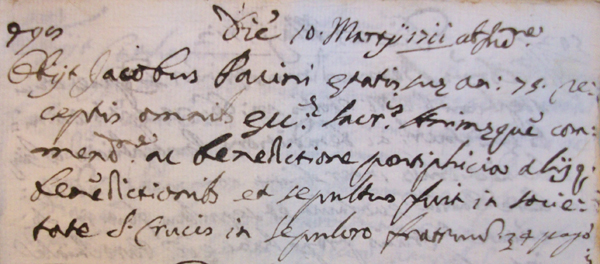 Die 10 Martij 1711 ab Jnd.e
Obijt Jacobus Pacini ętatis suę an: 75. re:
ceptis omnib eu: Sacr.s Animęque com:
mend.ne ac benedictione pontificia alijq;
benedictionib et sepultus fuit in socie:
tate S. Crucis in sepulcro fratrum